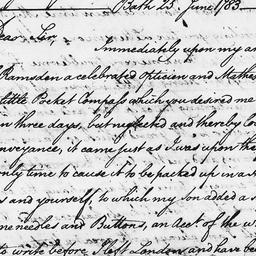 Bath 25. June 1783
Dear Sir,
Immediately upon my
Ramsden a celebrated Optician and Mathe
little Pocket Compass which you desired me
in three days, but neglected and thereby
onveyance, it came just as I was upon the
only time to cause it to be packed up in a
s and yourself, to which my son added a
ne needles and Buttons, an Acct of the w
to write before I left London and have be